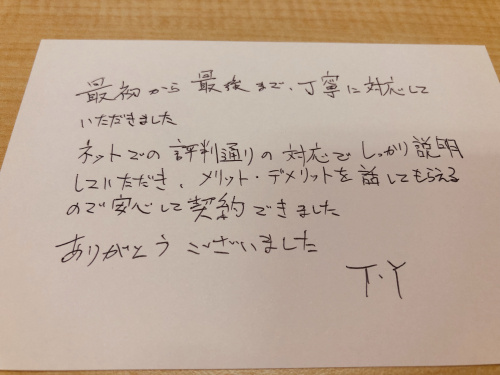 最初から最後まで、丁寧に対応して
いただきました
ネットでの評判通りの対応でしっかり説明
していただき、メリット・デメリットを話してもらえる
ので安心して契約できました
ありがとうございました
T・Y